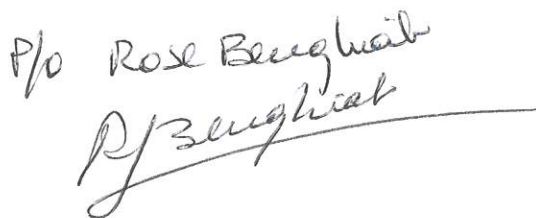 P/o Rose Benghiat
RBenghiat